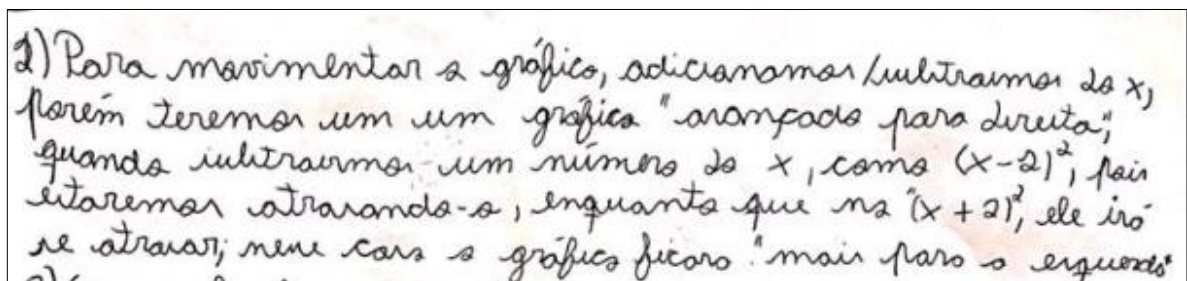 2) Para movimentar o gráfico, adicionamos/subtraimos do x,
porém teremos um um gráfico "avançado para direita",
quando subtrairmos um número do x, como (x-2)², pois
estaremos atrasando-o, enquanto que no "(x+2)², ele irá
se atrasar, nesse caso o gráfico ficara "mais para a esquerda"